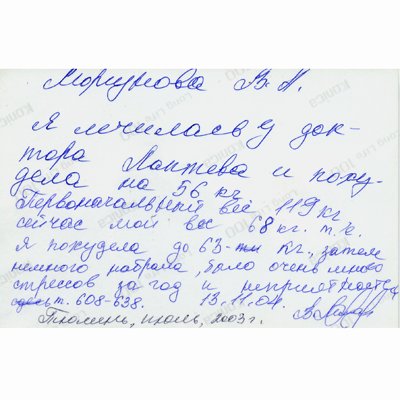 Моргунова В. А.
Я лечилась у док-
тора Лаптева и поху-
дела на 56 кг
Первоначальный вес 119 кг
сейчас мой вес 68 кг. т.к.
я похудела до 63-ти кг, затем
немного набрала, было очень много
стрессов за год и неприятностей
т. 608-638. 13.11.04
Тюмень, июль, 2003 г.